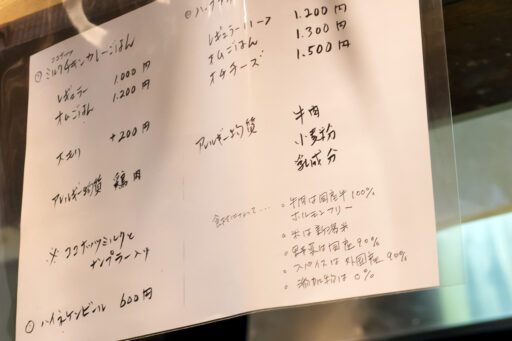 ココナッツ
① ミルクチキンカレーごはん
レギュラー 1.000円
オムごはん 1.200円
大モリ +200円
アレルギー物質 鶏肉
※ ココナッツミルクと
ナンプラー入り
◎ ハイネケンビール 600円
1.200円
オムごはん 1.300円
オチーズ 1.500円
アレルギー物質 牛肉
小麦粉
乳成分
。牛肉は国産牛100%
ホルモンフリー
。米は新潟米
。野菜は国産90%
。スパイスは外国産90%
。添加物は0%